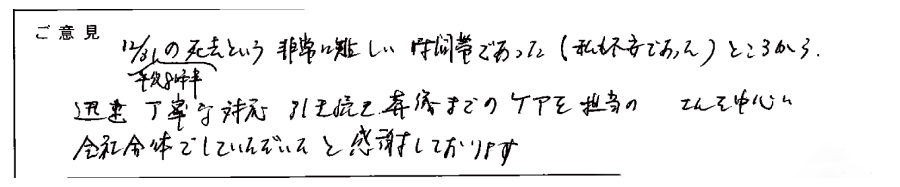 ご意見
12/31の死去という非常に難しい時間帯であった(私も不安であった)ところから、
午後8時半
迅速丁寧な対応 引き続き葬儀までのケアを担当の さんを中心に
会社全体でしていただいたと感謝しております